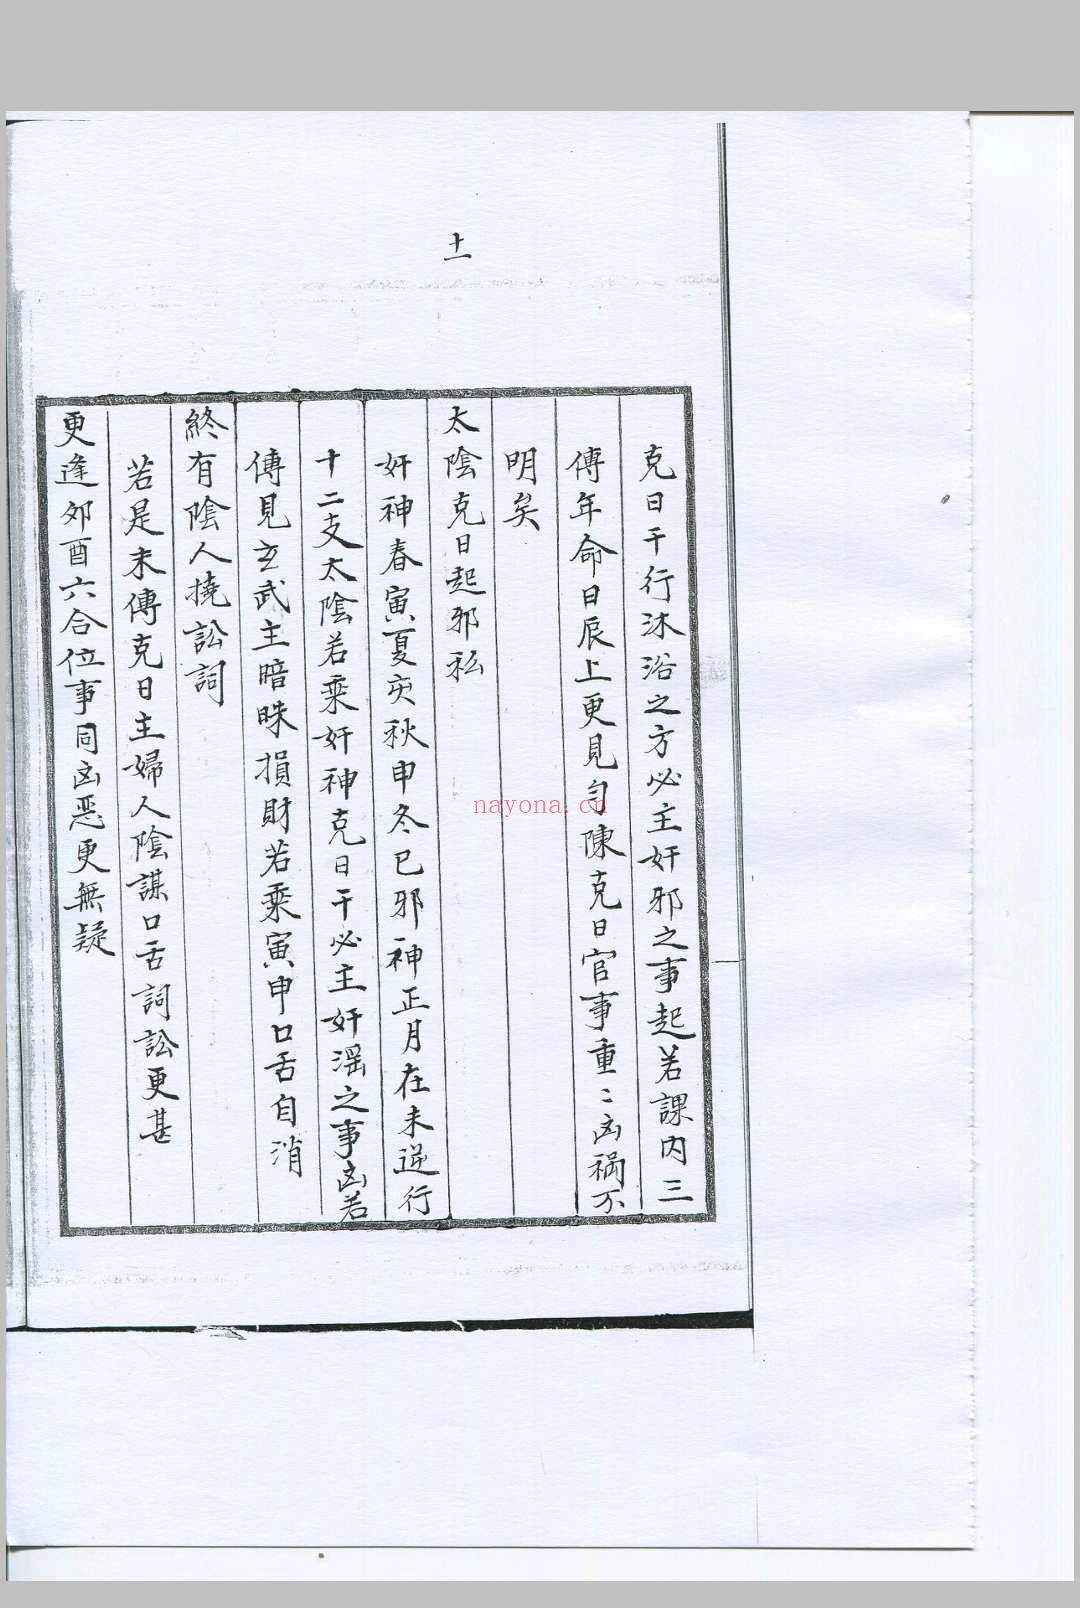 十一
克日干行沐浴之方必主奸邪之事起若課内三
傳年命日辰上更見勾陳克日官事重〻凶禍不
明矣
太陰克日起邪私
奸神春寅夏亥秋申冬巳邪神正月在未逆行
十二支太陰若乘奸神克日干必主奸滛之事凶若
傳見玄武主暗昧損財若乘寅申口舌自消
終有陰人撓訟詞
若是末傳克日主婦人陰謀口舌詞訟更甚
更逢夘酉六合位事同凶惡更無疑
nayona.cn